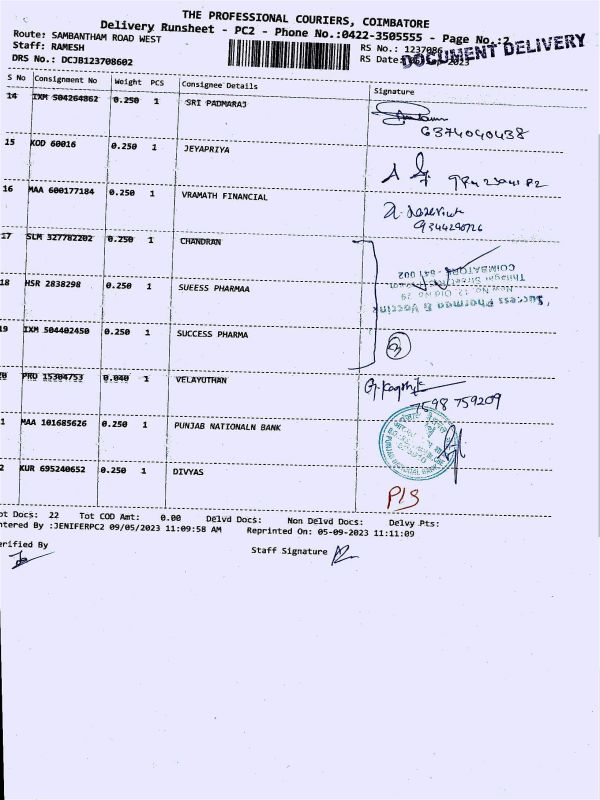 THE PROFESSIONAL COURIERS, COIMBATORE
Delivery Runsheet - PC2 - Phone No.:0422-3505555 - Page No.:2
Route: SAMBANTHAM ROAD WEST
RS No.: 1237086
Staff: RAMESH
RS Date: 2023
DOCUMENT DELIVERY
DRS No.: DCJB123708602
S No Consignment No Weight PCS Consignee Details Signature
14 IXM 504264862 0.250 1 SRI PADMARAJ
6374040438
15 KOD 60016 0.250 1 JEYAPRIYA
16 MAA 600177184 0.250 1 VRAMATH FINANCIAL
9344290726
17 SLM 327782202 0.250 1 CHANDRAN
COIMBATORE - 641 002
18 HSR 2838298 0.250 1 SUEESS PHARMAA
New No. 12 Old No. 29
Success Pharma & Vaccine
19 IXM 504402450 0.250 1 SUCCESS PHARMA
3
20 PRO 15304753 0.040 1 VELAYUTHAN
7598 759209
1 MAA 101685626 0.250 1 PUNJAB NATIONALN BANK
2 KUR 695240652 0.250 1 DIVYAS
P/S
ot Docs: 22 Tot COD Amt: 0.00 Delvd Docs: Non Delvd Docs: Delvy Pts:
ntered By :JENIFERPC2 09/05/2023 11:09:58 AM Reprinted On: 05-09-2023 11:11:09
erified By
Staff Signature